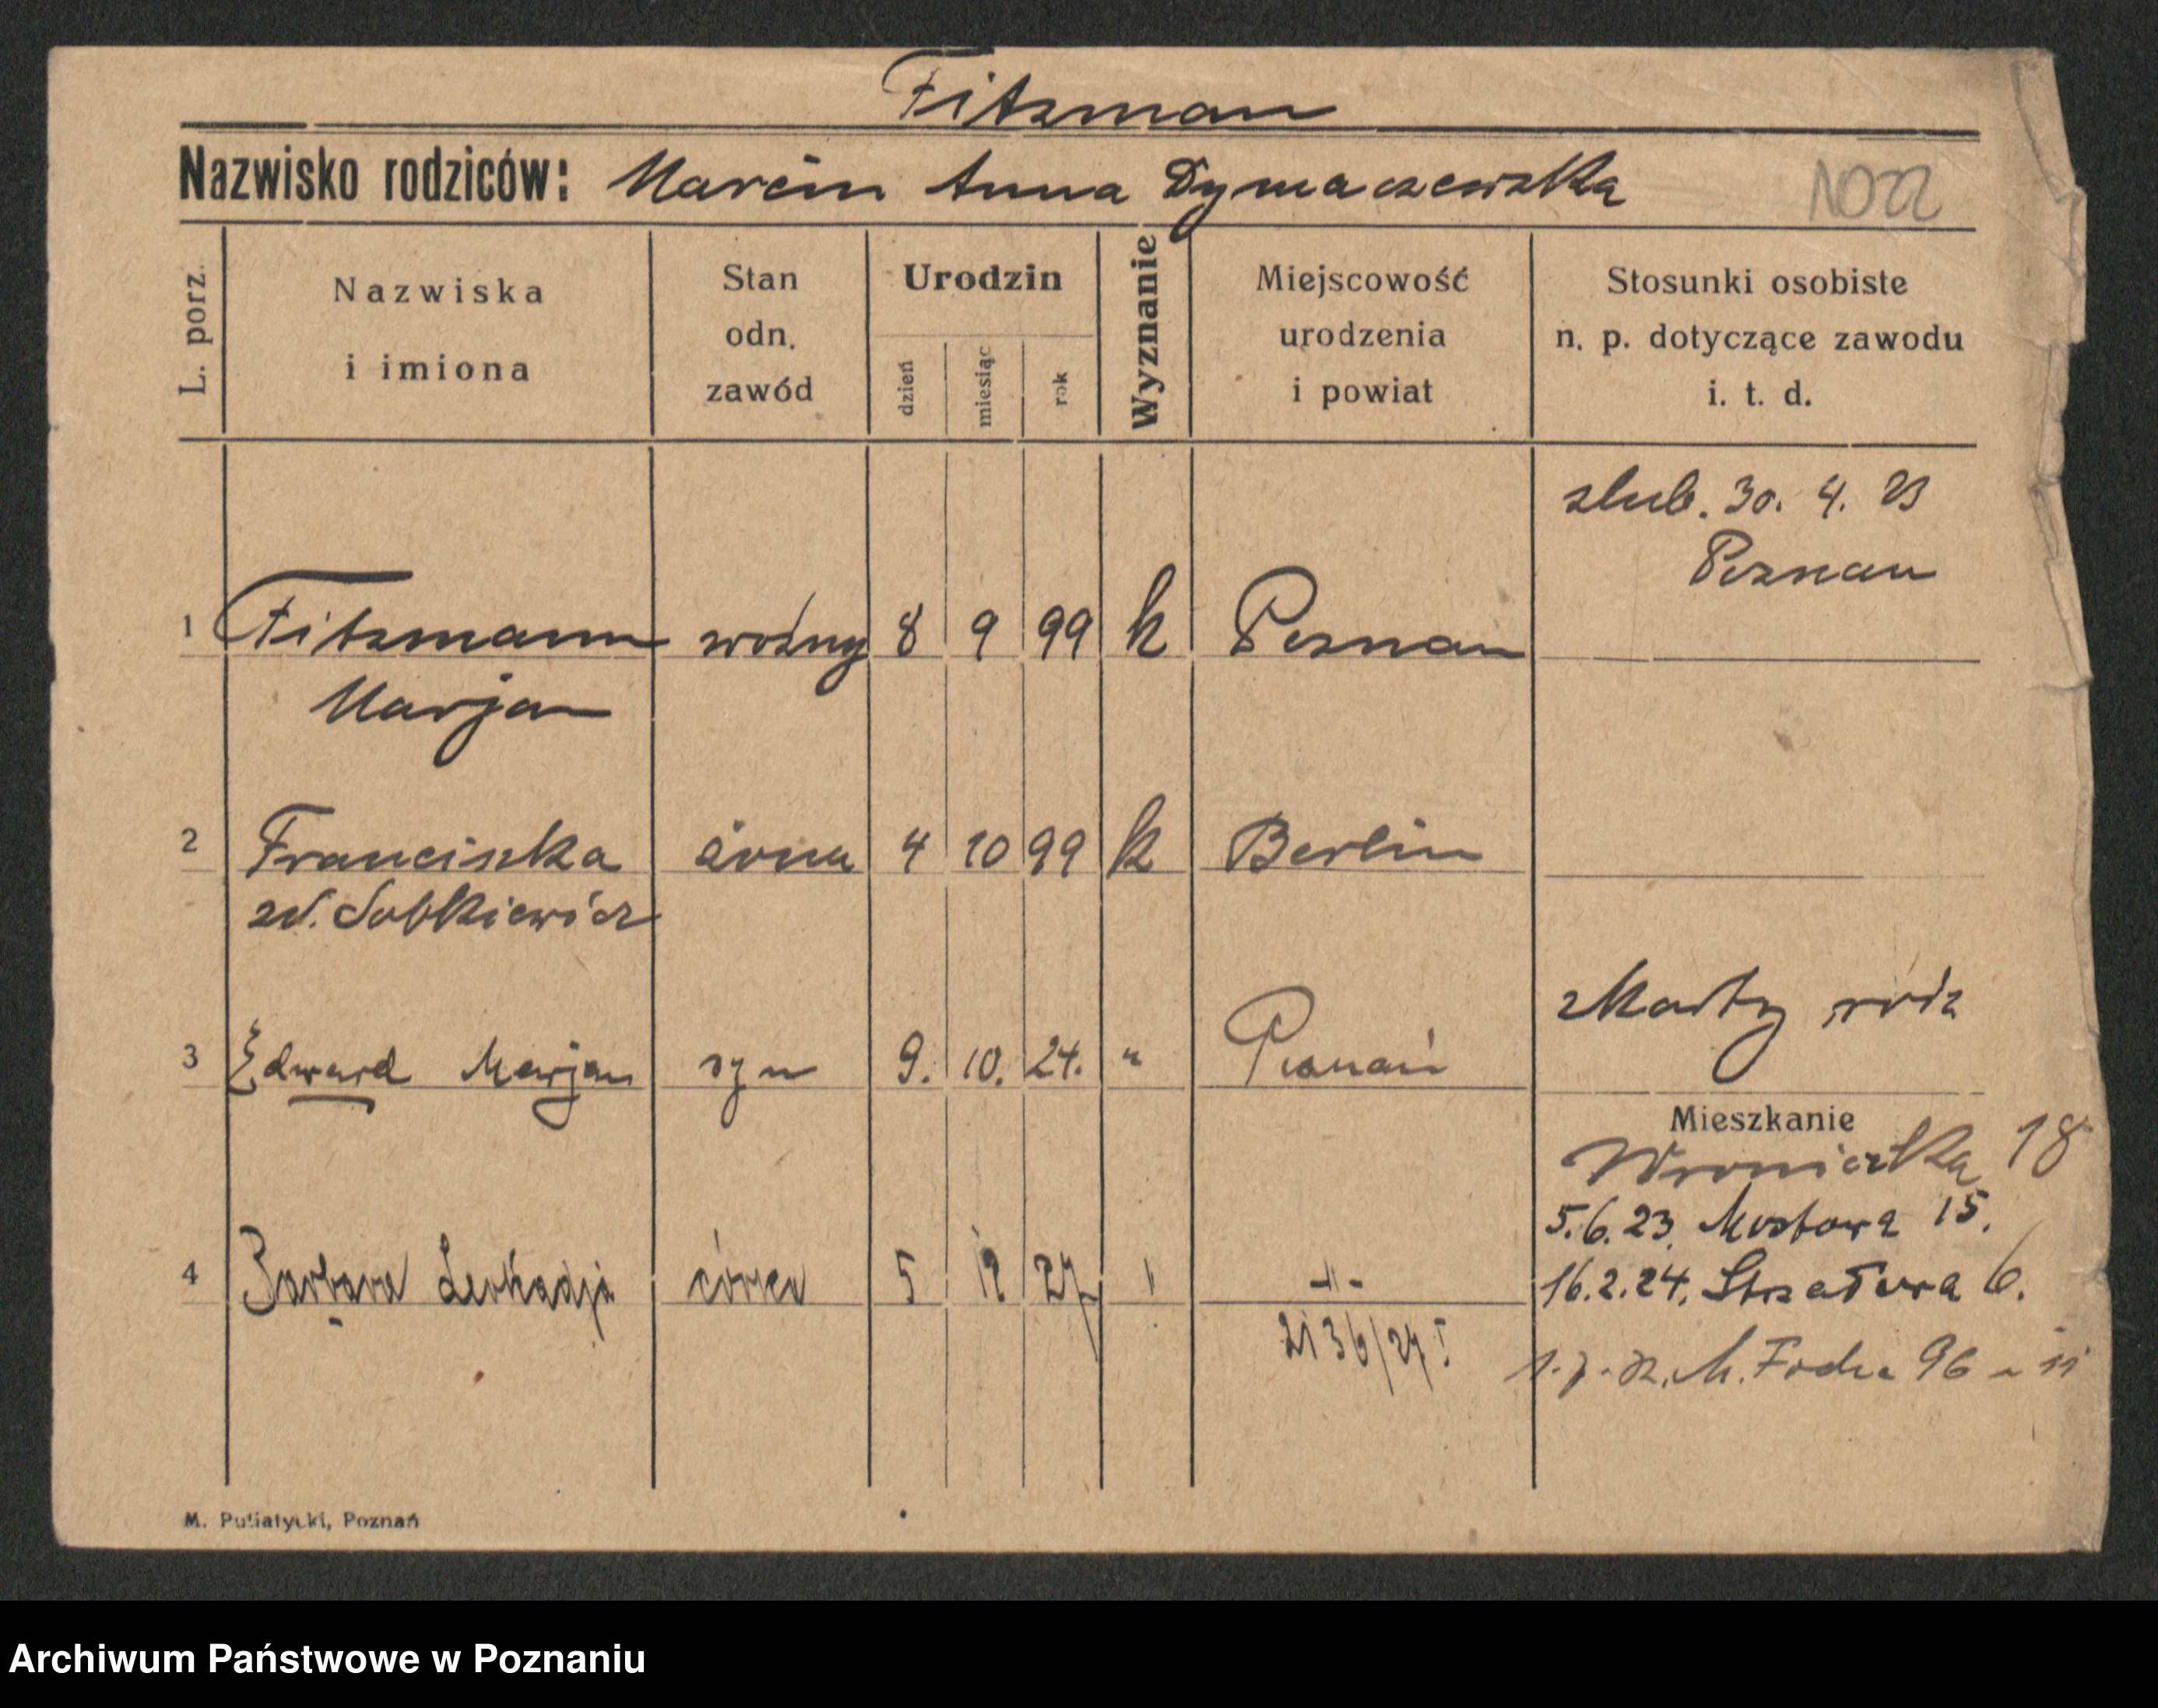 Fitzman
Nazwisko rodziców: Marcin Anna Dymaczewska
L. porz.
Nazwiska
i imiona
Stan
odn.
zawód
Urodzin
dzień
miesiąc
rok
Wyznanie
Miejscowość
urodzenia
i powiat
Stosunki osobiste
n. p. dotyczące zawodu
i. t. d.
slub. 30. 4. 23
Poznan
1 Fitzmann woźny 8 9 99 k Poznan
Marjan
2 Franciszka żona 4 10 99 k Berlin
zd. Sobkiewicz
3 Edward Marjan syn 9. 10. 24. " Poznań
Mieszkanie
Wroniecka 18
5.6.23. Mostowa 15.
4 Barbara Leokadja córka 5 12 27 " -"-
16.2.24. Strzałowa 6.
M. Focha 96
M. Putiatycki, Poznań
Archiwum Państwowe w Poznaniu